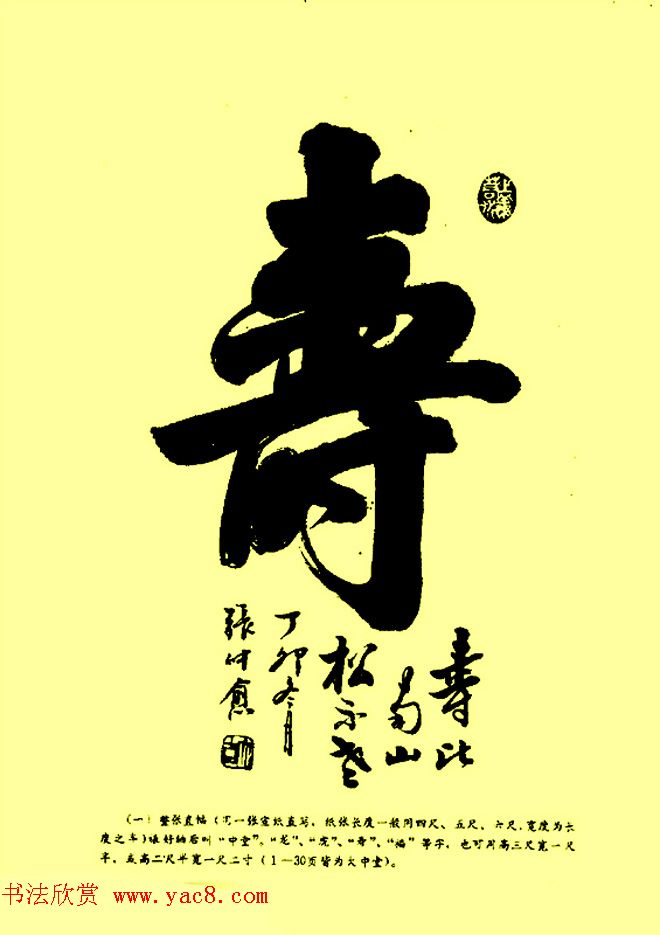 壽
壽比
南山
松不老
丁卯冬月
張
(一) 整张直幅 (用一张宣纸直写, 纸张长度一般用四尺、五尺、六尺, 宽度为长
度之半)裱好后叫“中堂”。“龙”、“虎”、“寿”、“福”等字, 也可用高三尺宽一尺
半, 或高二尺半宽一尺二寸 (1—30页皆为大中堂)。
书法欣赏 www.yac8.com